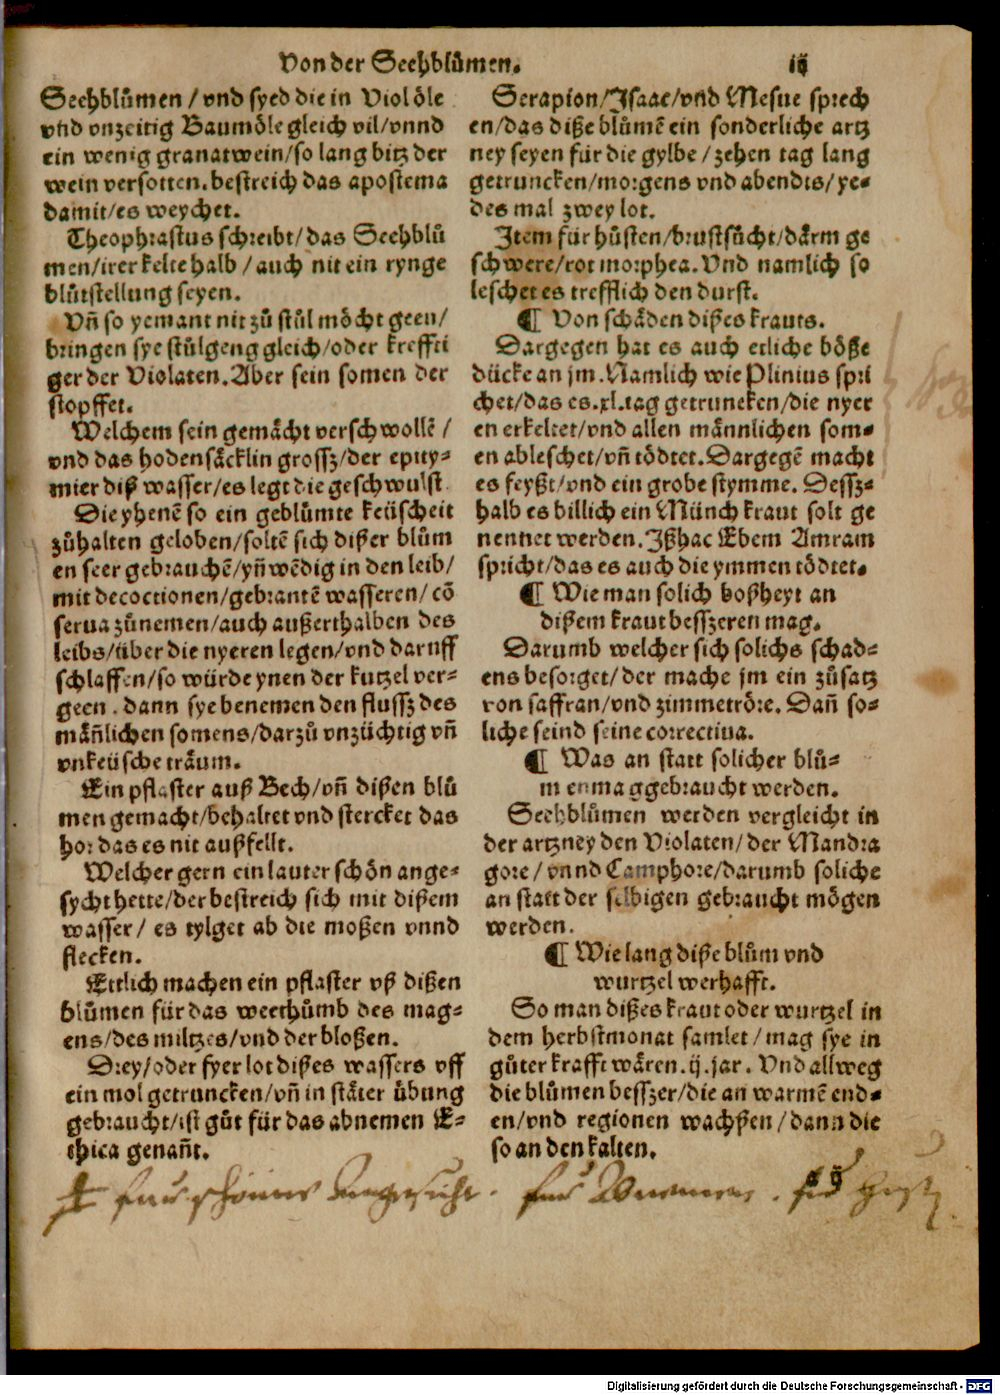 Von der Seehblůmen. ij
Seehblůmen / vnd syed die in Violöle
vñd vnzeitig Baumöle gleich vil/vnnd
ein wenig granatwein/so lang bitz der
wein versotten. bestreich das apostema
damit/es weychet.
Theophrastus schreibt/das Seehblů
men/irer kelte halb / auch nit ein rynge
blůtstellung seyen.
Vñ so yemant nit zů stůl möcht geen/
bringen sye stůlgeng gleich/oder kreffti
ger der Violaten. Aber sein somen der
stopffet.
Welchem sein gemächt verschwollē /
vnd das hodensäcklin grossz/der epity⸗
mier diß wasser/es legt die geschwulst
Die yhenē so ein geblůmte keüscheit
zůhalten geloben/soltē sich dißer blům
en seer gebrauchē/yñwēdig in den leib/
mit decoctionen/gebrantē wasseren/ cō
serua zůnemen/auch außerthalben des
leibs/über die nyeren legen/vnd daruff
schlaffen/so würde ynen der kutzel ver⸗
geen . dann sye benemen den flussz des
mäñlichen somens/darzů vnzüchtig vñ
vnkeüsche träum.
Ein pflaster auß Bech/vñ dißen blů
men gemacht/behaltet vnd stercket das
hor das es nit außfellt.
Welcher gern ein lauter schön ange⸗
sycht hette/der bestreich sich mit dißem
wasser/ es tylget ab die moßen vnnd
flecken.
Ettlich machen ein pflaster vß dißen
blůmen für das weethůmb des mag⸗
ens/des miltzes/vnd der bloßen.
Drey/oder fyer lot dißes wassers vff
ein mol getruncken/vñ in stäter übung
gebraucht/ist gůt für das abnemen E⸗
thica genañt.
Serapion/Isaac/vñd Mesue sprech
en/das diße blůmē ein sonderliche artz
ney seyen für die gylbe / zehen tag lang
getruncken/morgens vnd abendts/ye⸗
des mal zwey lot.
Item für hůsten/brustsücht/därm ge
schwere/rot morphea. Vnd namlich so
leschet es trefflich den durst.
¶ Von schäden dißes krauts.
Dargegen hat es auch etliche böße
dücke an jm. Namlich wie Plinius spri
chet/das es .xl. tag getruncken/die nyer
en erkeltet/vnd allen männlichen som⸗
en ableschet/vñ tödtet. Dargegē macht
es feyßt/vnd ein grobe stymme. Dessz⸗
halb es billich ein Münch kraut solt ge
nennet werden. Ißhac Ebem Amram
spricht/das es auch die ymmen tödtet.
¶ Wie man solich boßheyt an
dißem kraut besszeren mag.
Darumb welcher sich solichs schad⸗
ens besorget/der mache jm ein zůsatz
von saffran/vnd zimmetröre. Dañ so⸗
liche seind seine correctiua.
¶ Was an statt solicher blů⸗
men mag gebraucht werden.
Seehblůmen werden vergleicht in
der artzney den Violaten/der Mandra
gore / vnnd Camphore/darumb soliche
an statt der selbigen gebraucht mögen
werden.
¶ Wie lang diße blům vnd
wurtzel werhafft.
So man dißes kraut oder wurtzel in
dem herbstmonat samlet / mag sye in
gůter krafft wären .ij. jar. Vnd allweg
die blůmen besszer/die an warmē end⸗
en/vnd regionen wachßen / dann die
so an den kalten.
Digitalisierung gefördert durch die Deutsche Forschungsgemeinschaft - DFG